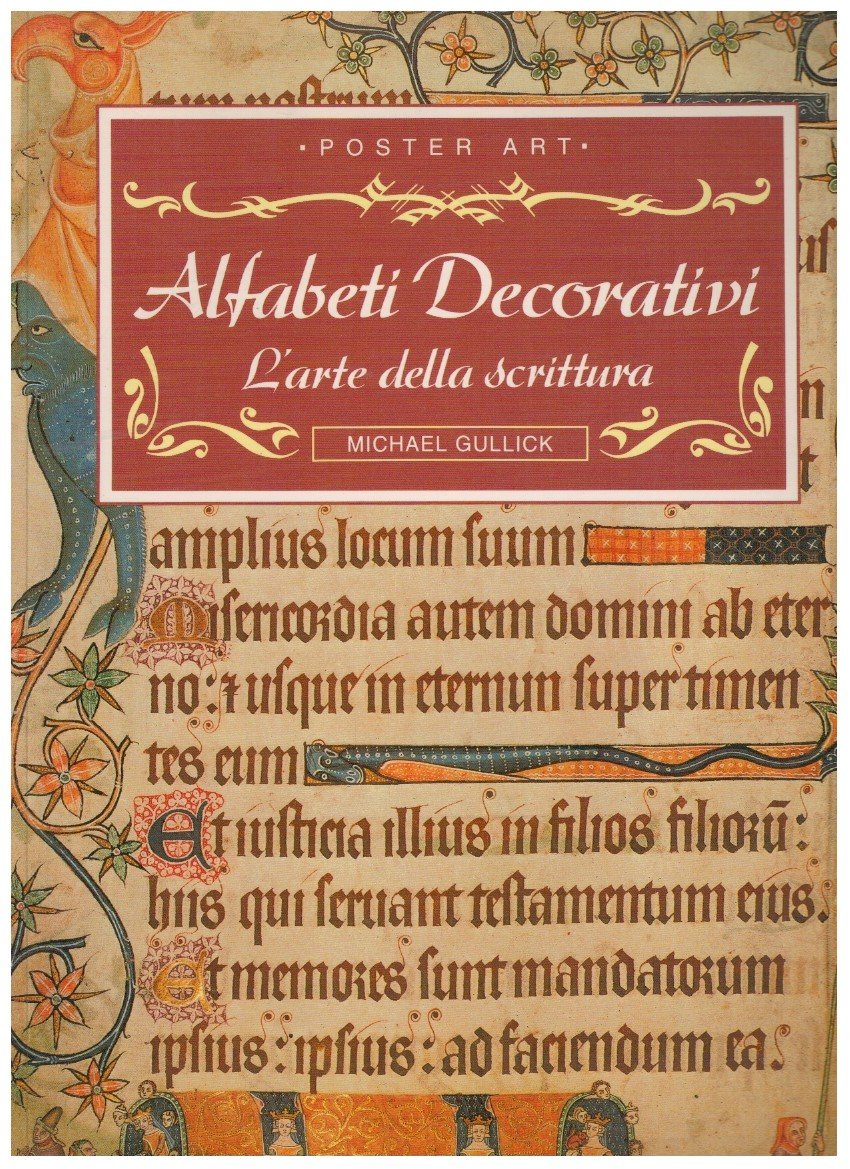 tum noſtrum
·POSTER ART·
Alfabeti Decorativi
L'arte della scrittura
MICHAEL GULLICK
amplius locum ſuum
Miſericordia autem domini ab eter
no: ⁊ uſque in eternum ſuper timen
tes eum
Et iuſticia illius in filios filiorū:
hiis qui ſeruant teſtamentum eius.
Et memores ſunt mandatorum
ipſius: ipſius: ad faciendum ea.